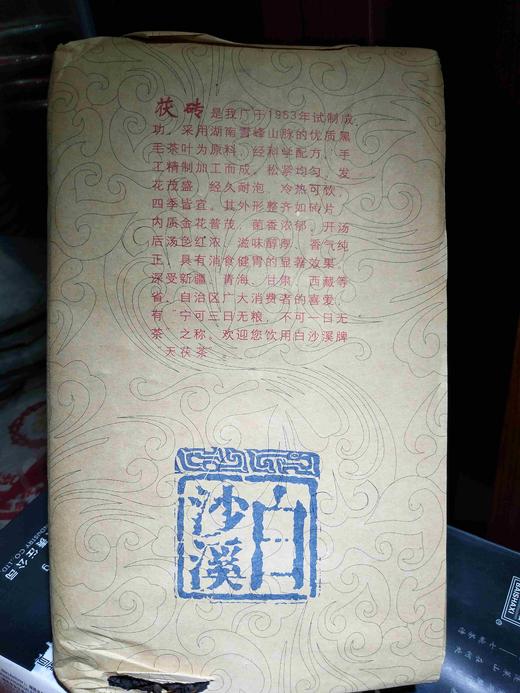 茯砖是我厂于1953年试制成
功，采用湖南雪峰山脉的优质黑
毛茶叶为原料，经科学配方，手
工精制加工而成。松紧均匀，发
花茂盛，经久耐泡，冷热可饮，
四季皆宜。其外形整齐如砖片，
内质金花普茂，菌香浓郁，开汤
后汤色红浓，滋味醇厚，香气纯
正，具有消食健胃的显著效果，
深受新疆、青海、甘肃、西藏等
省、自治区广大消费者的喜爱，
有“宁可三日无粮，不可一日无
茶”之称。欢迎您饮用白沙溪牌
“天茯茶”。
白沙溪
责任公司
INDUSTRY CO.,LTD
BAISHAXI